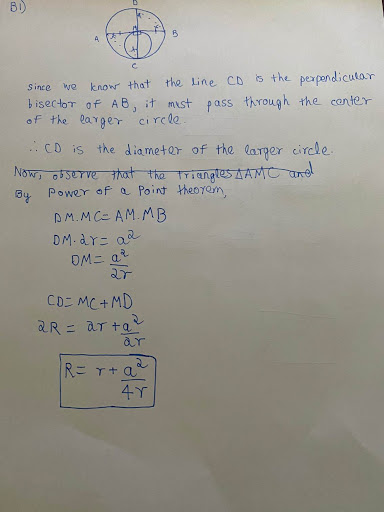 B1)
D
A
B
C
Since we know that the line CD is the perpendicular
bisector of AB, it must pass through the center
of the larger circle.
∴ CD is the diameter of the larger circle.
Now, observe that the triangles ΔAMC and
By Power of a Point theorem,
DM.MC = AM.MB
DM.2r = a²
DM = a²/2r
CD = MC + MD
2R = 2r + a²/2r
R = r + a²/4r